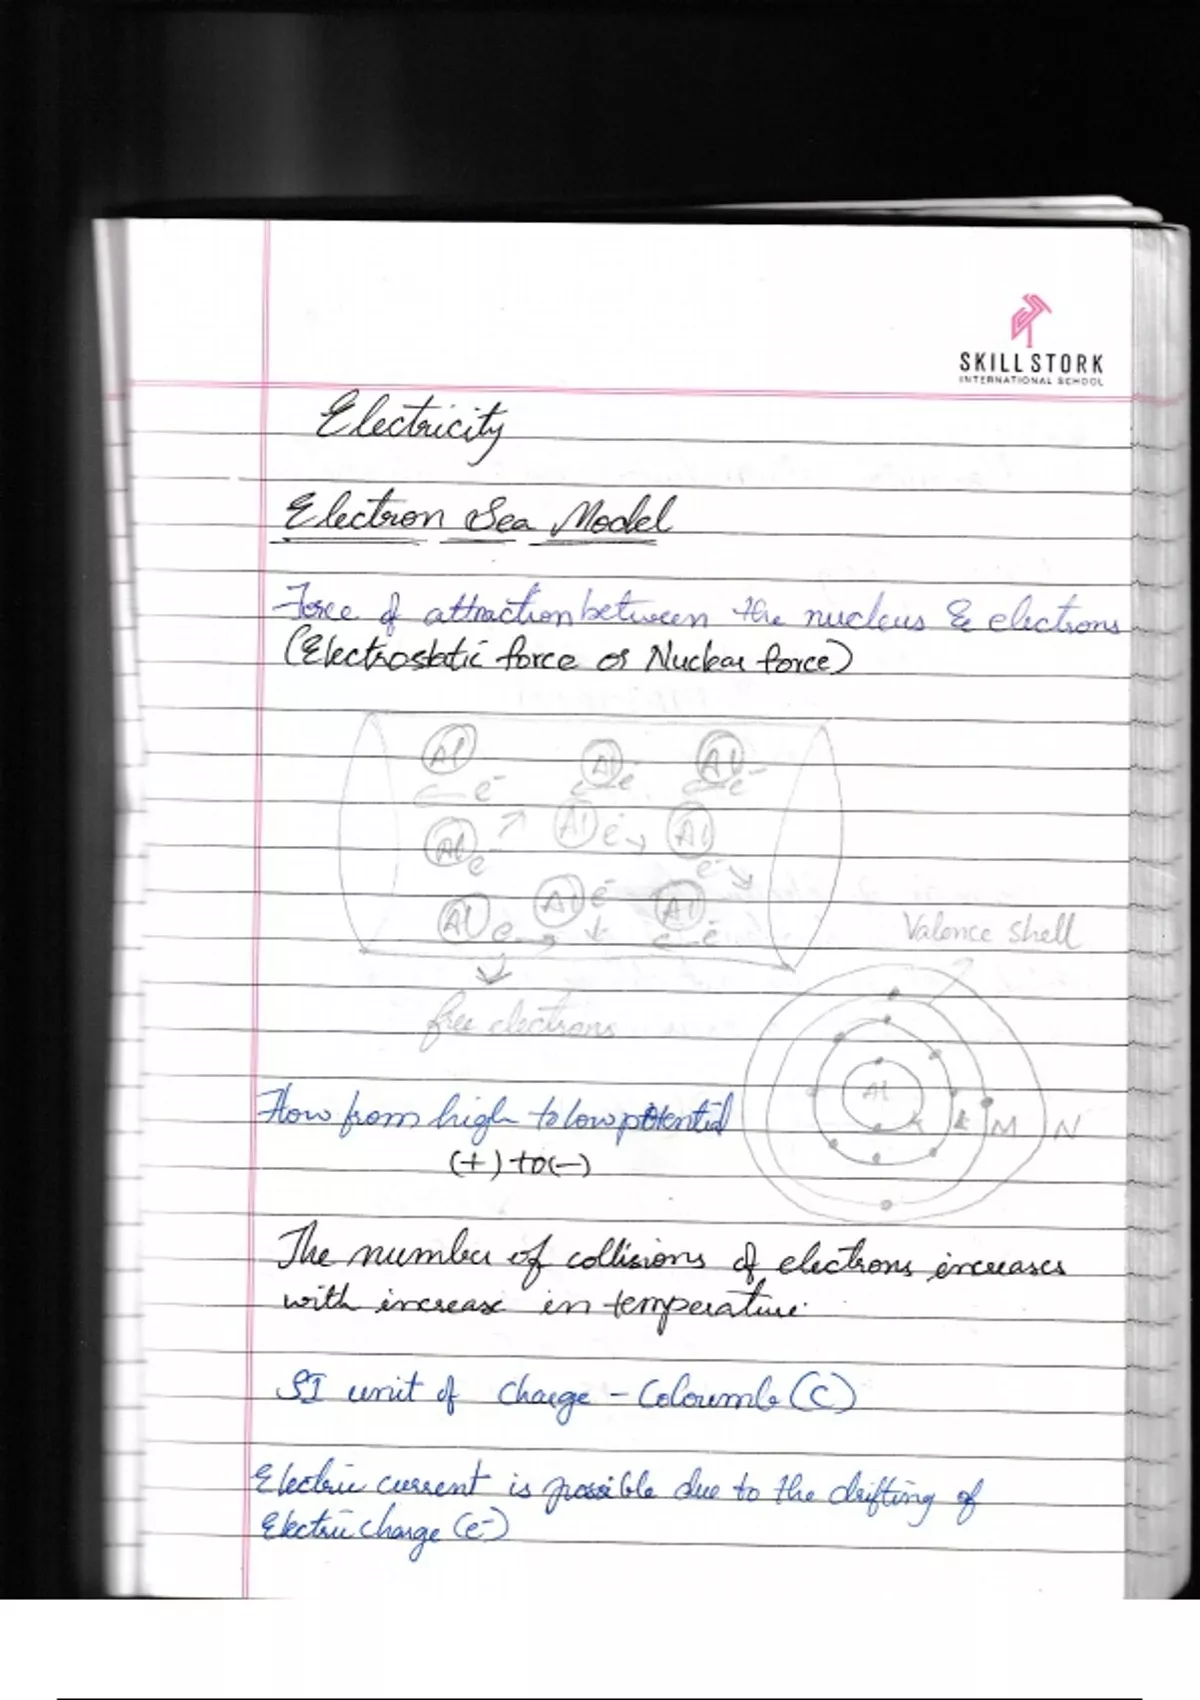 SKILL STORK
INTERNATIONAL SCHOOL
Electricity
Electron Sea Model
Force of attraction between the nucleus & electrons
(Electrostatic force or Nuclear force)
Al Al Al
e- e- e-
Al Al e- Al
e- e-
Al Al e- Al
e- e-
Valence shell
free electrons
Al
K L M N
Flow from high to low potential
(+) to (-)
The number of collisions of electrons increases
with increase in temperature.
SI unit of charge - Coloumb (C)
Electric current is possible due to the drifting of
Electric charge (e-)